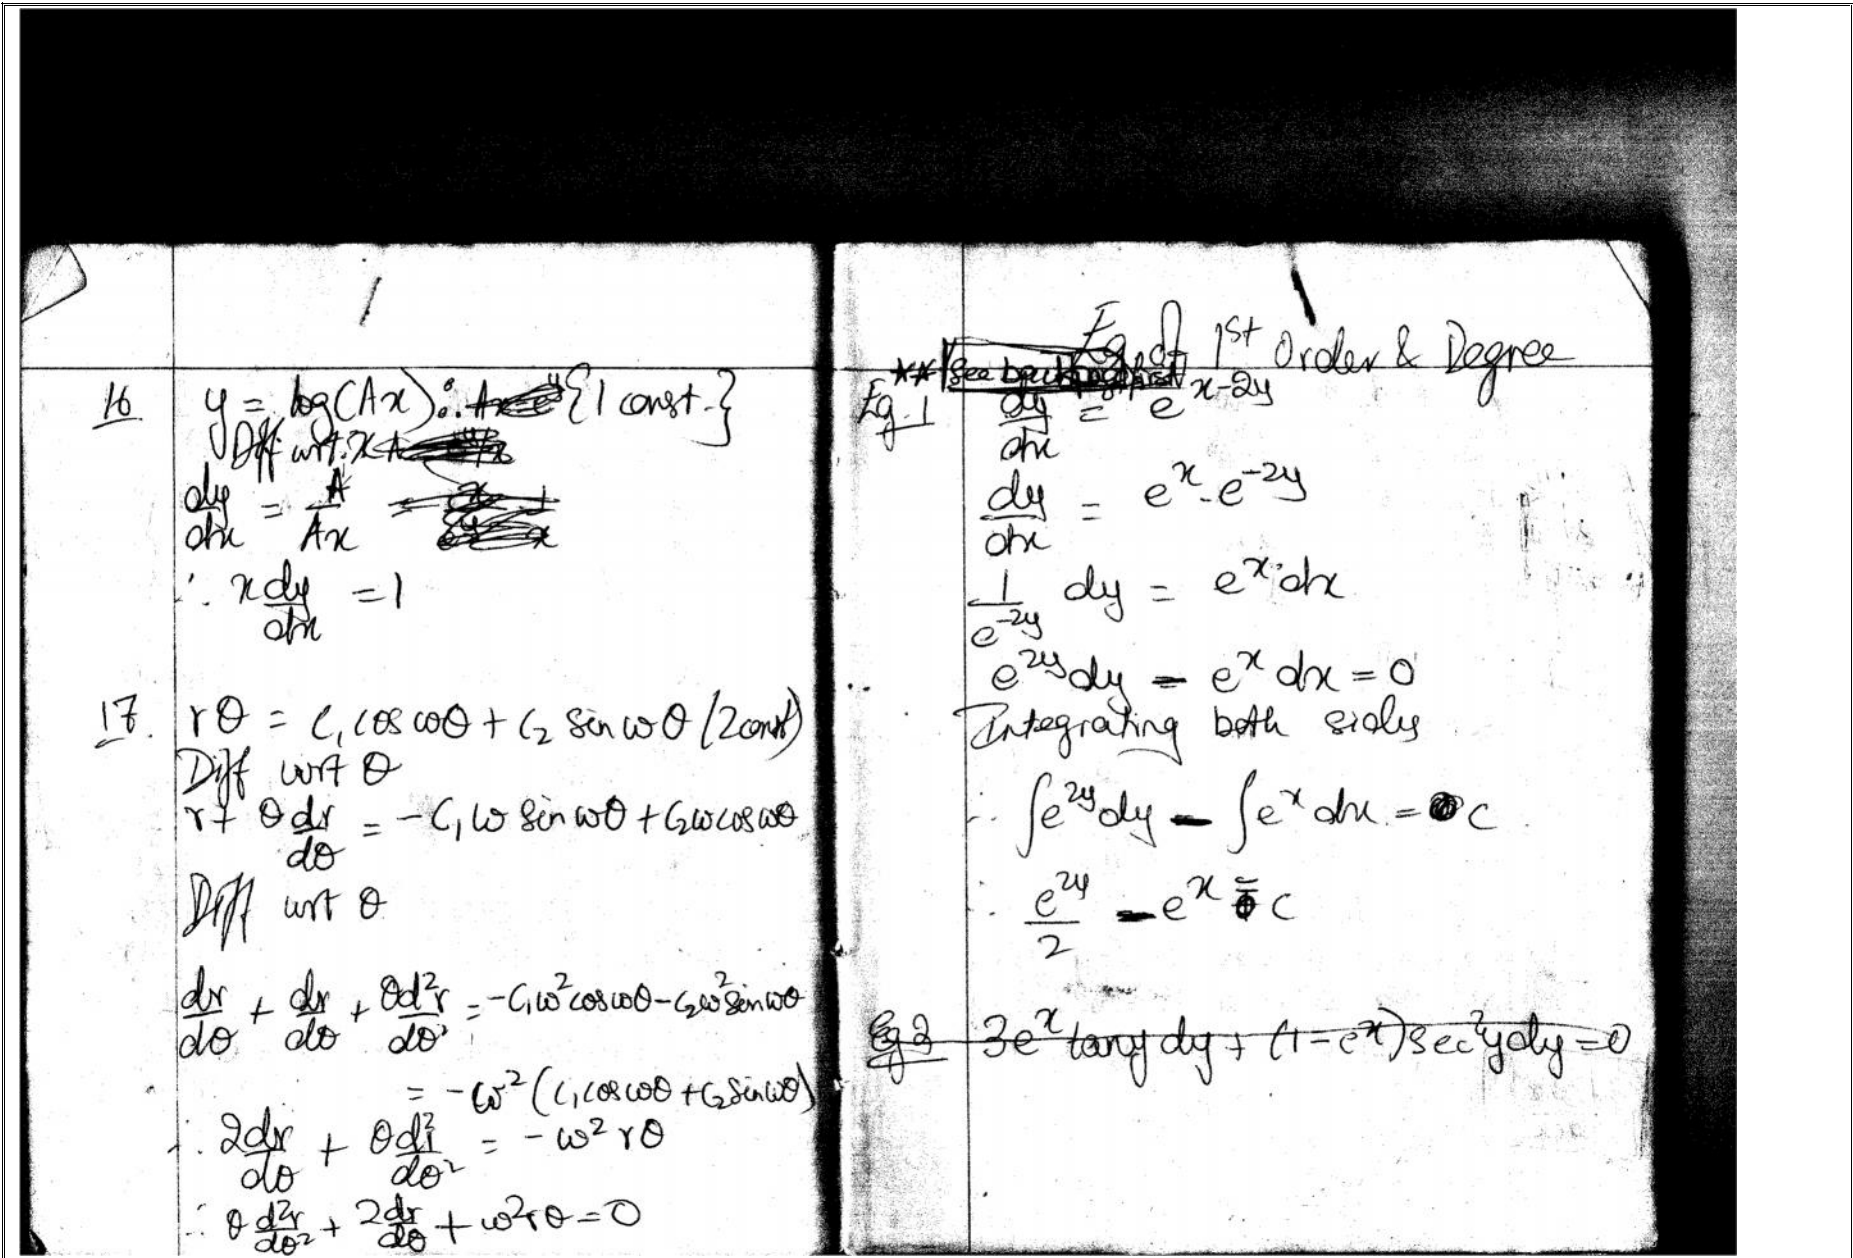 16 y = log(Ax) {1 const.}
Diff wrt. x
dy/dx = A/Ax
∴ x dy/dx = 1
17. rθ = C₁ cos ωθ + C₂ sin ωθ (2 const)
Diff wrt θ
r + θ dr/dθ = -C₁ω sin ωθ + C₂ω cos ωθ
Diff wrt θ
dr/dθ + dr/dθ + θ d²r/dθ² = -C₁ω² cos ωθ - C₂ω² sin ωθ
= -ω² (C₁ cos ωθ + C₂ sin ωθ)
∴ 2dr/dθ + θ d²r/dθ² = -ω² rθ
∴ θ d²r/dθ² + 2dr/dθ + ω² rθ = 0
Eq of 1st Order & Degree
** See
Eg. 1 dy/dx = e^(x-2y)
dy/dx = e^x . e^(-2y)
1/e^(-2y) dy = e^x . dx
e^(2y) dy - e^x dx = 0
Integrating both sides
∴ ∫e^(2y) dy - ∫e^x dx = c
∴ e^(2y)/2 - e^x = c
Eg 2 3e^x tan y dy + (1 - e^x) sec² y dy = 0